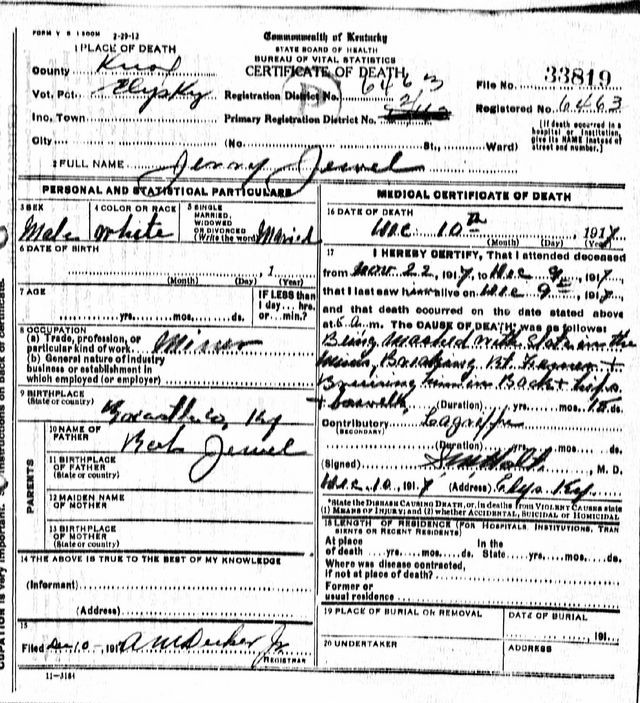 FORM V S 1 500M 2-29-12
Commonwealth of Kentucky
STATE BOARD OF HEALTH
BUREAU OF VITAL STATISTICS
CERTIFICATE OF DEATH
1 PLACE OF DEATH
County Knox
Vot. Pct. Elys Ky
Inc. Town
City (No. St., Ward)
Registration District No. 6463
Primary Registration District No.
File No. 33819
Registered No. 6463
(If death occurred in a
hospital or institution,
give its NAME instead of
street and number.)
2 FULL NAME Jerry Jewel
PERSONAL AND STATISTICAL PARTICULARS
3 SEX
Male
4 COLOR OR RACE
White
5 SINGLE
MARRIED,
WIDOWED
OR DIVORCED
(Write the word) Married
6 DATE OF BIRTH
, 1
(Month) (Day) (Year)
7 AGE
yrs. mos. ds.
IF LESS than
1 day... hrs.
or... min.?
8 OCCUPATION
(a) Trade, profession, or
particular kind of work Miner
(b) General nature of industry
business or establishment in
which employed (or employer)
9 BIRTHPLACE
(State or country)
Ky
PARENTS
10 NAME OF
FATHER
Jewel
11 BIRTHPLACE
OF FATHER
(State or country)
12 MAIDEN NAME
OF MOTHER
13 BIRTHPLACE
OF MOTHER
(State or country)
14 THE ABOVE IS TRUE TO THE BEST OF MY KNOWLEDGE
(Informant)
(Address)
15
Filed Dec 10 - 1917 A M Decker Jr
REGISTRAR
11-3184
MEDICAL CERTIFICATE OF DEATH
16 DATE OF DEATH
Dec 10th, 1917
(Month) (Day) (Year)
17 I HEREBY CERTIFY, That I attended deceased
from Nov. 22, 1917, to Dec 9th, 1917,
that I last saw him alive on Dec 9th, 1917,
and that death occurred on the date stated above
at 5 a.m. The CAUSE OF DEATH* was as follows:
Being Mashed with Slate in the
Mine, Breaking Rt Femur +
Bruising him in Back + hips
+ bowells
(Duration) yrs. mos. ds.
Contributory Lagrippe
(SECONDARY)
(Duration) yrs. mos. ds.
(Signed) , M. D.
Dec. 10, 1917 (Address) Elys Ky.
*State the DISEASE CAUSING DEATH, or, in deaths from VIOLENT CAUSES state
(1) MEANS OF INJURY; and (2) whether ACCIDENTAL, SUICIDAL or HOMICIDAL
18 LENGTH OF RESIDENCE (FOR HOSPITALS, INSTITUTIONS, TRAN
SIENTS OR RECENT RESIDENTS)
At place In the
of death yrs. mos. ds. State yrs. mos. ds.
Where was disease contracted,
if not at place of death?
Former or
usual residence
19 PLACE OF BURIAL OR REMOVAL
DATE OF BURIAL
, 191
20 UNDERTAKER
ADDRESS